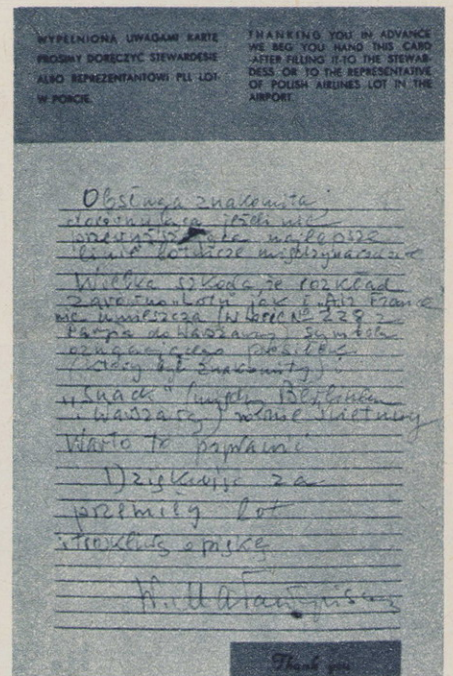 WYPEŁNIONĄ UWAGAMI KARTĘ
PROSIMY DORĘCZYĆ STEWARDESIE
ALBO REPREZENTANTOWI PLL LOT
W PORCIE.
THANKING YOU IN ADVANCE
WE BEG YOU HAND THIS CARD
AFTER FILLING IT TO THE STEWAR-
DESS OR TO THE REPRESENTATIVE
OF POLISH AIRLINES LOT IN THE
AIRPORT.
Obsługa znakomita,
dorównująca jeśli nie
przewyższająca najlepsze
linie lotnicze międzynarodowe
Wielka szkoda, że rozkład
zarówno „Lotu" jak i Air France
nie umieszcza
do Warszawy) symbolu
oznaczającego posiłek
(który był znakomity) i
„snack" (między Berlinem
i Warszawą) również świetny
Warto to poprawić
Dziękując za
przemiły lot
i troskliwą opiekę
Thank you